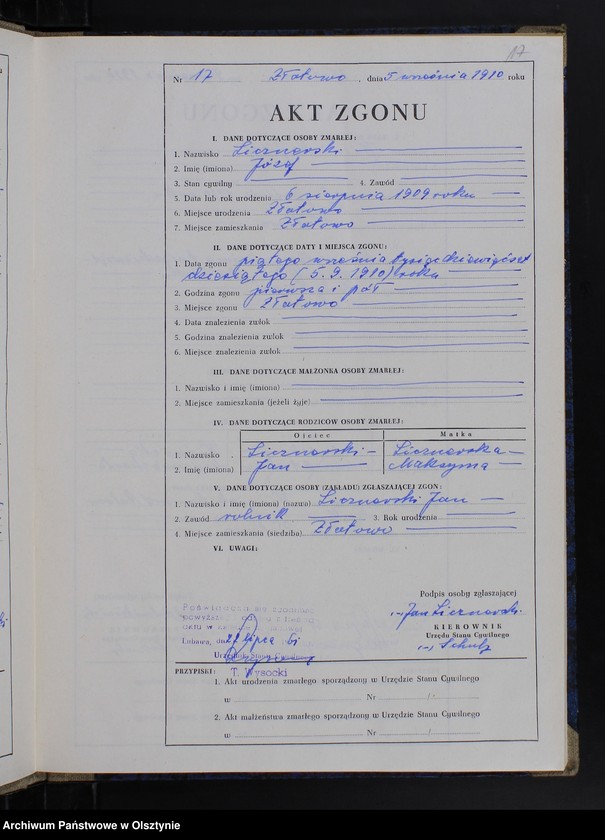 17
Nr 17 Złotowo, dnia 5 września 1910 roku
AKT ZGONU
I. DANE DOTYCZĄCE OSOBY ZMARŁEJ:
1. Nazwisko Licznerski
2. Imię (imiona) Józef
3. Stan cywilny 4. Zawód
5. Data lub rok urodzenia 6 sierpnia 1909 roku
6. Miejsce urodzenia Złotowo
7. Miejsce zamieszkania Złotowo
II. DANE DOTYCZĄCE DATY I MIEJSCA ZGONU:
1. Data zgonu piątego września tysiąc dziewięćset
dziesiątego (5.9.1910) roku
2. Godzina zgonu pierwsza i pół
3. Miejsce zgonu Złotowo
4. Data znalezienia zwłok
5. Godzina znalezienia zwłok
6. Miejsce znalezienia zwłok
III. DANE DOTYCZĄCE MAŁŻONKA OSOBY ZMARŁEJ:
1. Nazwisko i imię (imiona)
2. Miejsce zamieszkania (jeżeli żyje)
IV. DANE DOTYCZĄCE RODZICÓW OSOBY ZMARŁEJ:
Ojciec Matka
1. Nazwisko Licznerski Licznerska
2. Imię (imiona) Jan Maksyma
V. DANE DOTYCZĄCE OSOBY (ZAKŁADU) ZGŁASZAJĄCEJ ZGON:
1. Nazwisko i imię (imiona) (nazwa) Licznerski Jan
2. Zawód rolnik 3. Rok urodzenia
4. Miejsce zamieszkania (siedziba) Złotowo
VI. UWAGI:
Podpis osoby zgłaszającej
Jan Licznerski
KIEROWNIK
Urzędu Stanu Cywilnego
Schulz
Poświadcza się zgodność
powyższego
aktu w
Lubawa, dn. lipca
Urzędnik Stanu Cywilnego
T. Wysocki
PRZYPISKI:
1. Akt urodzenia zmarłego sporządzono w Urzędzie Stanu Cywilnego
w Nr
2. Akt małżeństwa zmarłego sporządzono w Urzędzie Stanu Cywilnego
w Nr
Archiwum Państwowe w Olsztynie